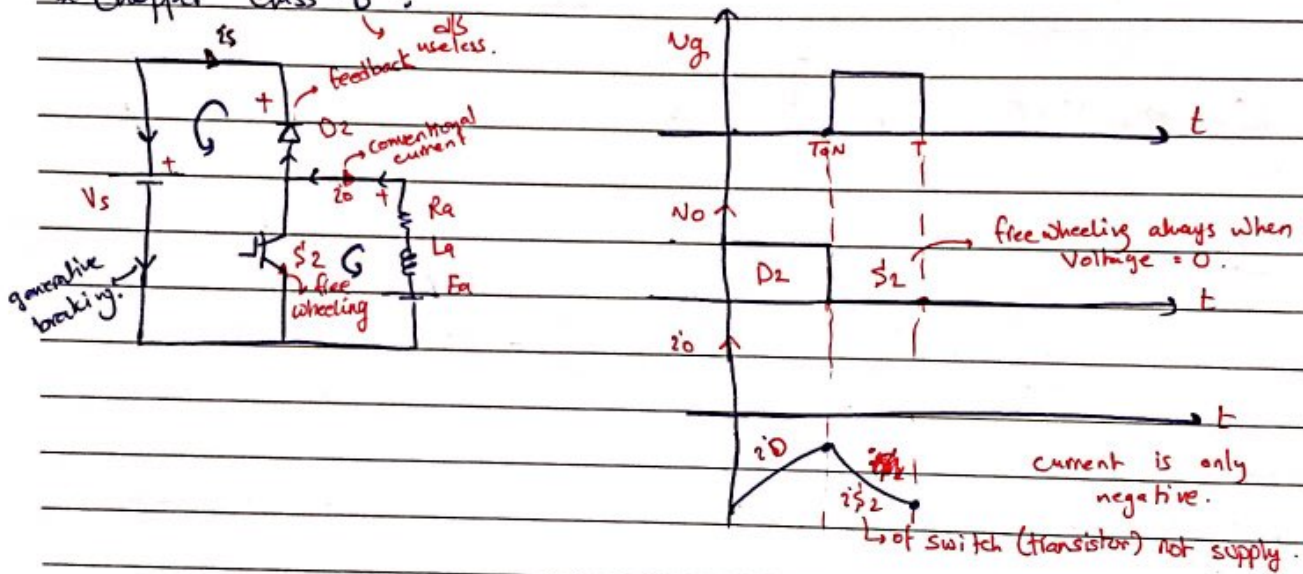 * Chopper Class B :
d/s
useless.
is
feedback
+
D2
conventional
current
Vs
+
io
+
Ra
La
Ea
S2
free
wheeling
generative
braking.
Vg
t
TON
T
Vo
D2
S2
freewheeling always when
voltage = 0.
t
io
t
iD
iS2
current is only
negative.
↳ of switch (transistor) not supply.